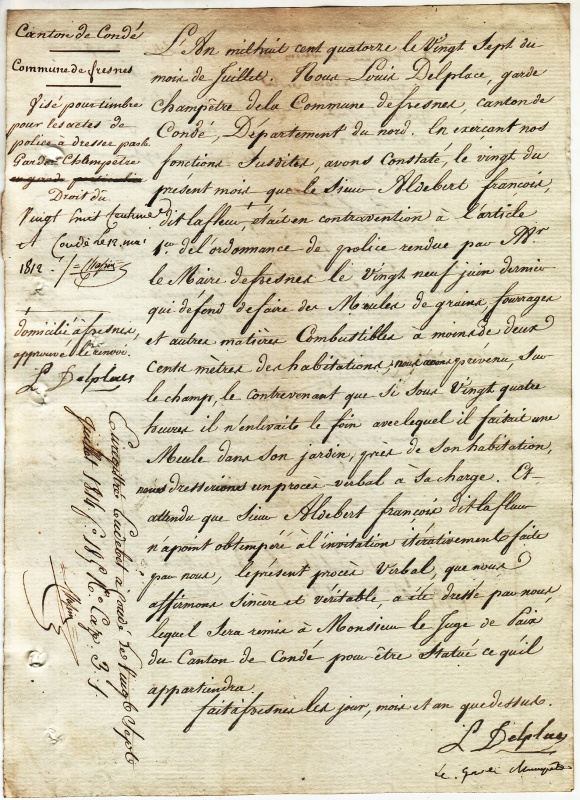 Canton de Condé
Commune de fresnes
Visé pour timbre
pour les actes de
police à dresser par le
Garde Champêtre
Droit du
Vingt huit
Condé le 12 mai
1812
domicilié à fresnes,
approuvé le renvoi.
L. Delplace
L'An mil huit cent quatorze le Vingt Sept du
mois de Juillet. Nous Louis Delplace, garde
champêtre de la Commune de fresnes, canton de
Condé, Département du nord. En exerçant nos
fonctions Susdites, avons Constaté, le vingt du
present mois que le Sieur Aldebert françois,
dit lafleur, était en contravention à l'article
1er de l'ordonnance de police rendue par Mr
le Maire de fresnes le Vingt neuf juin dernier
qui défend de faire des Meules de grains, fourrages
et autres matières Combustibles à moins de deux
Cents mètres des habitations, nous avons prevenu, Sur
le champ, le contrevenant que si Sous Vingt quatre
heures il n'enlevaite le foin avec lequel il faisait une
Meule dans Son jardin, près de Son habitation,
nous dresserions un procès verbal à Sa charge. Et
attendu que Sieur Aldebert françois dit lafleur
n'a point obtempéré à l'invitation itérativement faite
par nous, le présent procès Verbal, que nous
affirmons Sincère et véritable, a été dressé par nous,
lequel Sera remis à Monsieur le Juge de Paix
du Canton de Condé pour être Statué ce qu'il
appartiendra.
fait à fresnes les jour, mois et an que dessus.
L. Delplace
Le Garde
Enregistré à Condé le Vingt Sept
Juillet 1814 fo 185